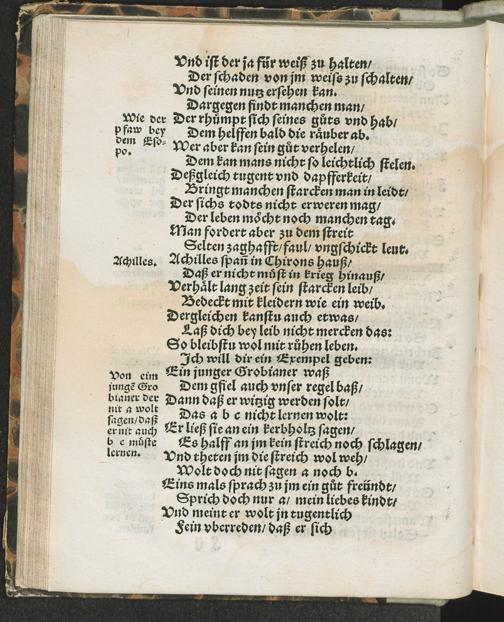 Vnd ist der ja für weiß zu halten/
Der schaden von jm weiß zu schalten/
Vnd seinen nutz ersehen kan.
Dargegen findt manchen man/
Der rhümpt sich seines gůts vnd hab/
Dem helffen bald die räuber ab.
Wer aber kan sein gůt verhelen/
Dem kan mans nicht so leichtlich stelen.
Deßgleich tugent vnd dapfferkeit/
Bringt manchen starcken man in leidt/
Der sichs todts nicht erweren mag/
Der leben möcht noch manchen tag.
Man fordert aber zu dem streit
Selten zaghafft/ faul/ vngschickt leut.
Achilles spañ in Chirons hauß/
Daß er nicht müst in krieg hinauß/
Verhält lang zeit sein starcken leib/
Bedeckt mit kleidern wie ein weib.
Dergleichen kanstu auch etwas/
Laß dich bey leib nicht mercken das:
So bleibstu wol mit rühen leben.
Ich will dir ein Exempel geben:
Ein junger Grobianer waß
Dem gfiel auch vnser regel baß/
Dann daß er witzig werden solt/
Das a b c nicht lernen wolt:
Er ließ sie an ein kerbholtz sagen/
Es halff an jm kein streich noch schlagen/
Vnd theten jm die streich wol weh/
Wolt doch nit sagen a noch b.
Eins mals sprach zu jm ein gůt freündt/
Sprich doch nur a/ mein liebes kindt/
Vnd meint er wolt jn tugentlich
Fein vberreden/ daß er sich
Wie der
pfaw bey
dem Eso-
po.
Achilles.
Von eim
jungẽ Gro
bianer der
nit a wolt
sagen/ daß
er nit auch
b c müste
lernen.